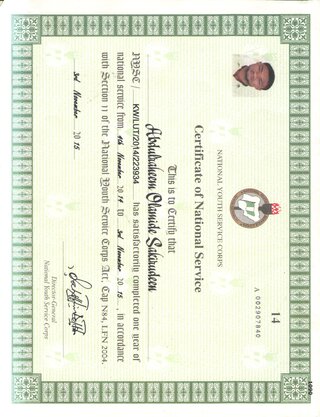 14
A 002907840
NATIONAL YOUTH SERVICE CORPS
Certificate of National Service
This is to Certify that
Abdulraheem Olamide Sakirudeen
NYSC / KWI/LUT/2014/223934 has satisfactorily completed one year of
national service from 4th November 2014 to 3rd November 2015, in accordance
with Section 11 of the National Youth Service Corps Act, Cap N84, LFN 2004.
3rd November 2015
Director-General
National Youth Service Corps